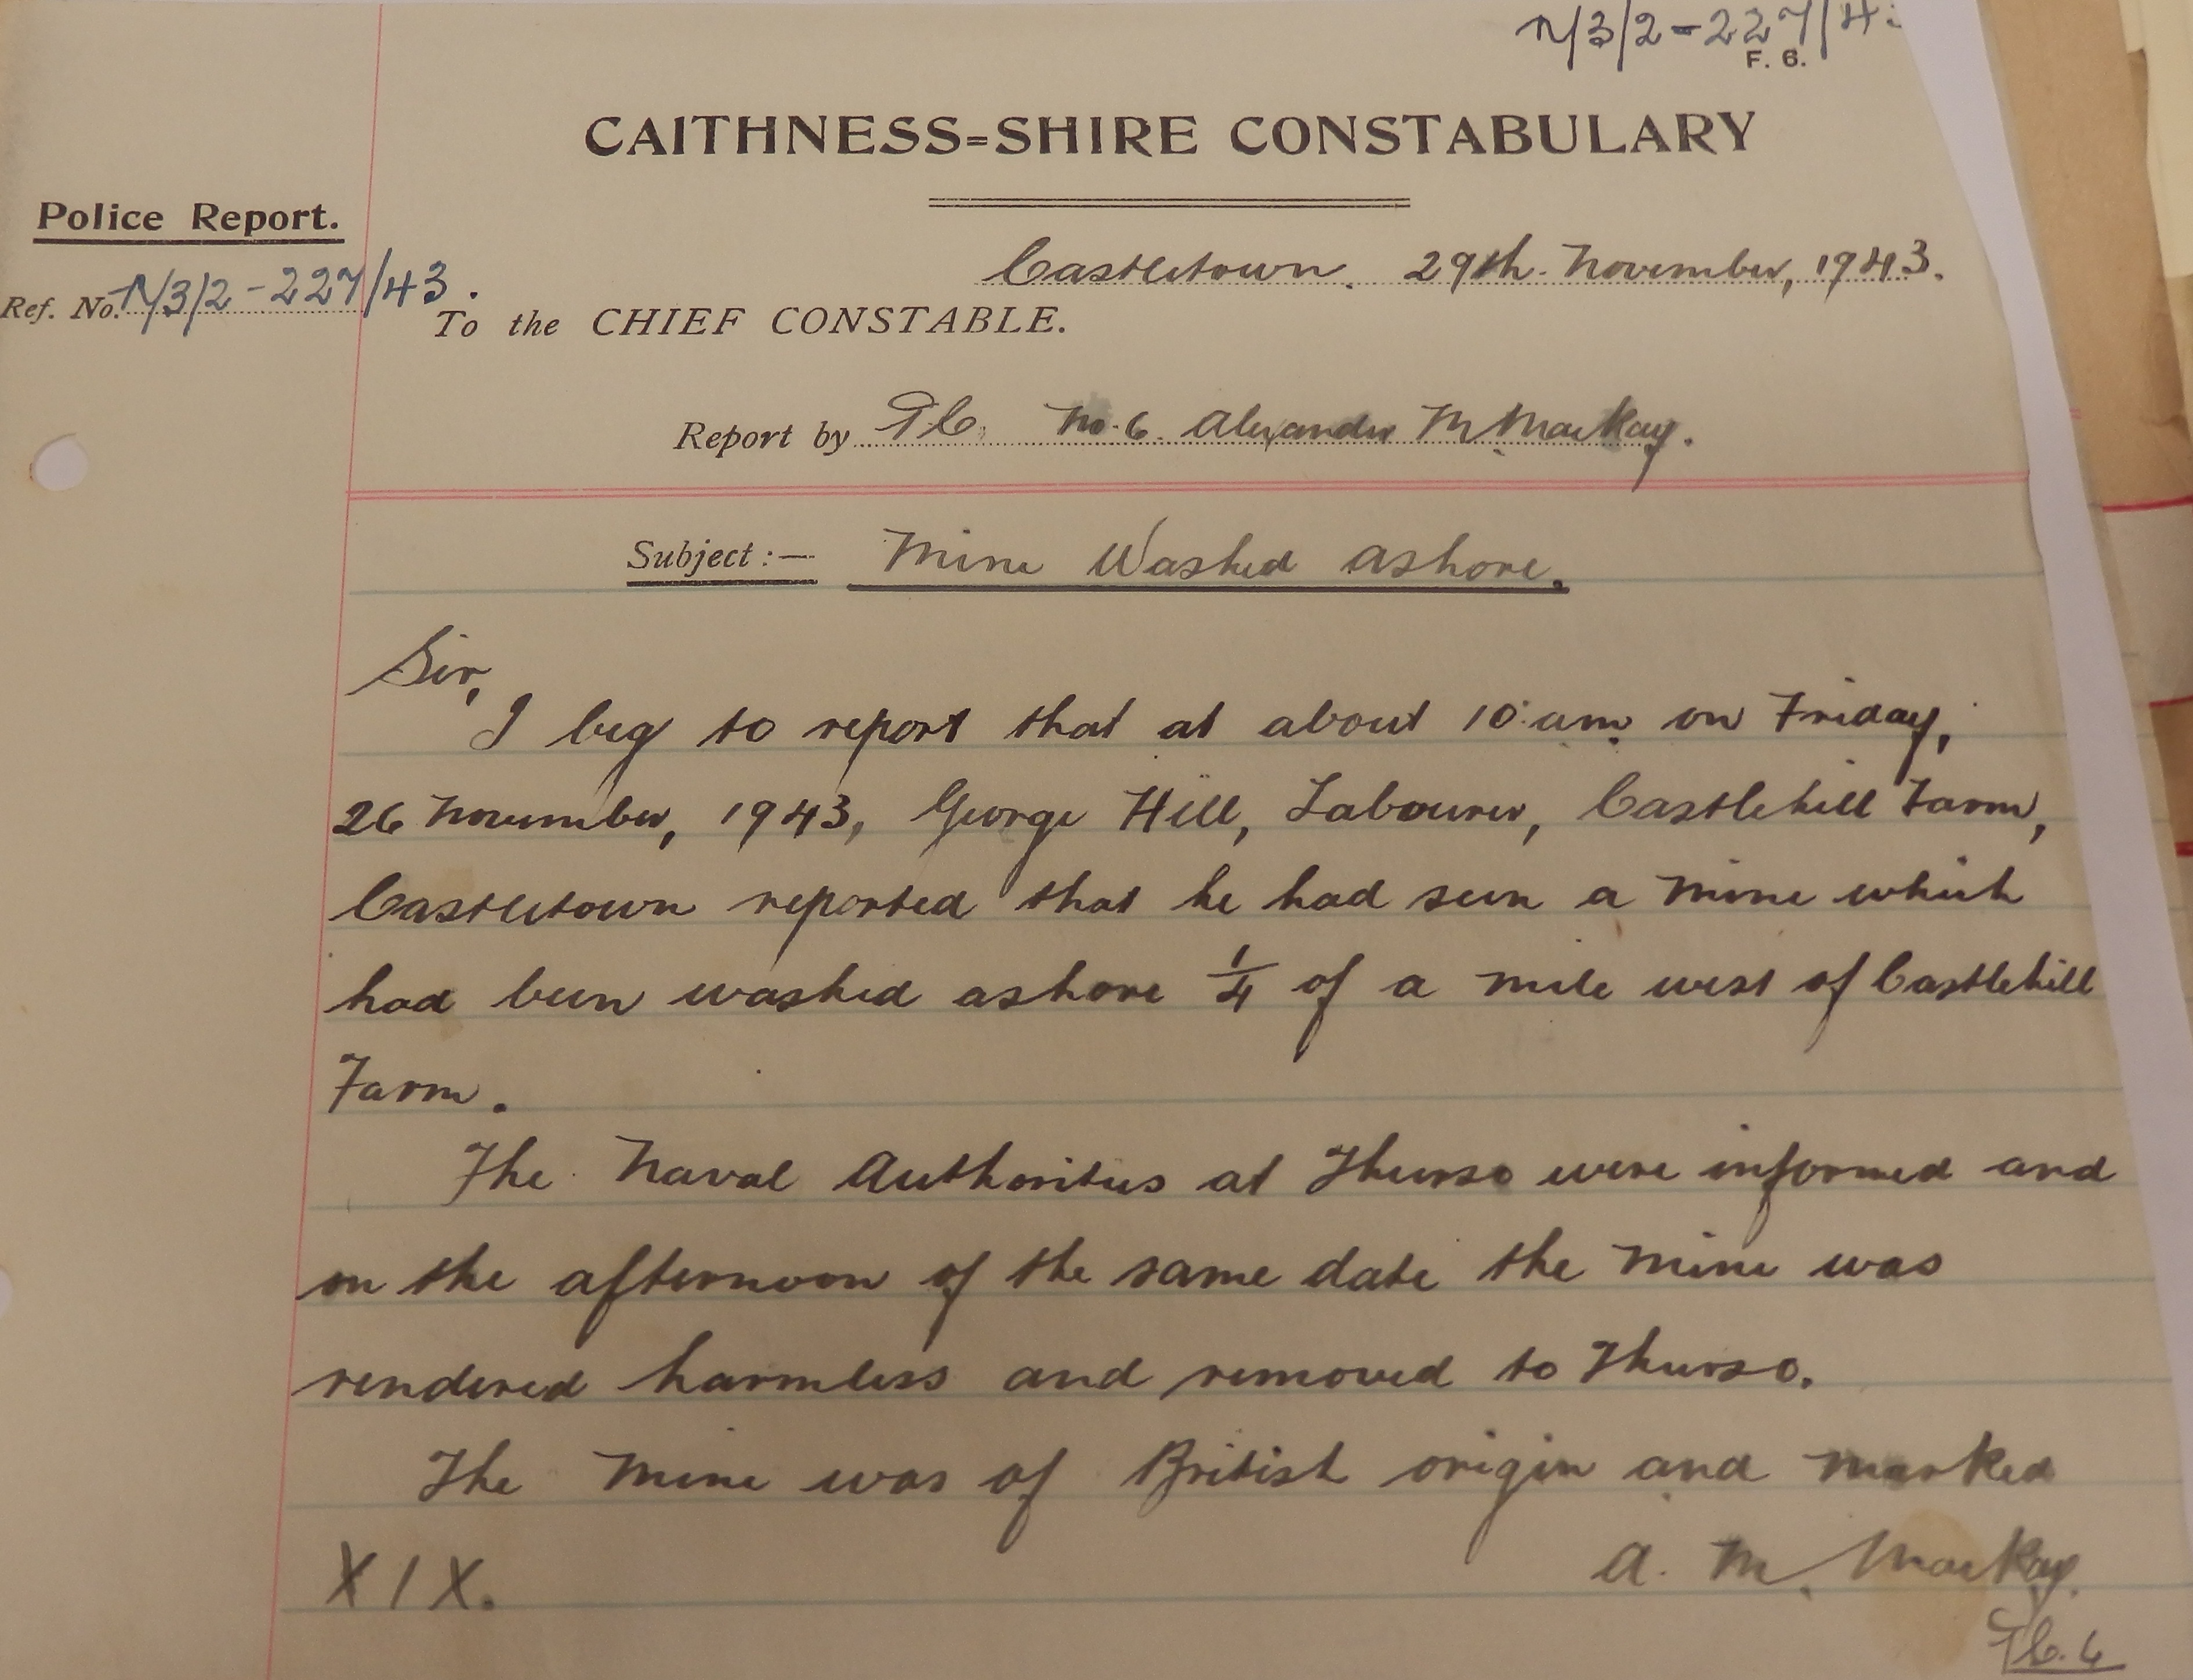 N/3/2-227/43
F. 6.
CAITHNESS=SHIRE CONSTABULARY
Police Report.
Castletown. 29th. November, 1943.
Ref. No. N/3/2-227/43.
To the CHIEF CONSTABLE.
Report by P.C. No. 6. Alexander M. MacKay.
Subject :— Mine Washed ashore.
Sir,
I beg to report that at about 10 am. on Friday,
26 November, 1943, George Hill, Labourer, Castlehill Farm,
Castletown reported that he had seen a mine which
had been washed ashore 1/4 of a mile west of Castlehill
Farm.
The Naval Authorities at Thurso were informed and
on the afternoon of the same date the mine was
rendered harmless and removed to Thurso.
The mine was of British origin and marked
XIX.
A. M. MacKay.
P.C. 6